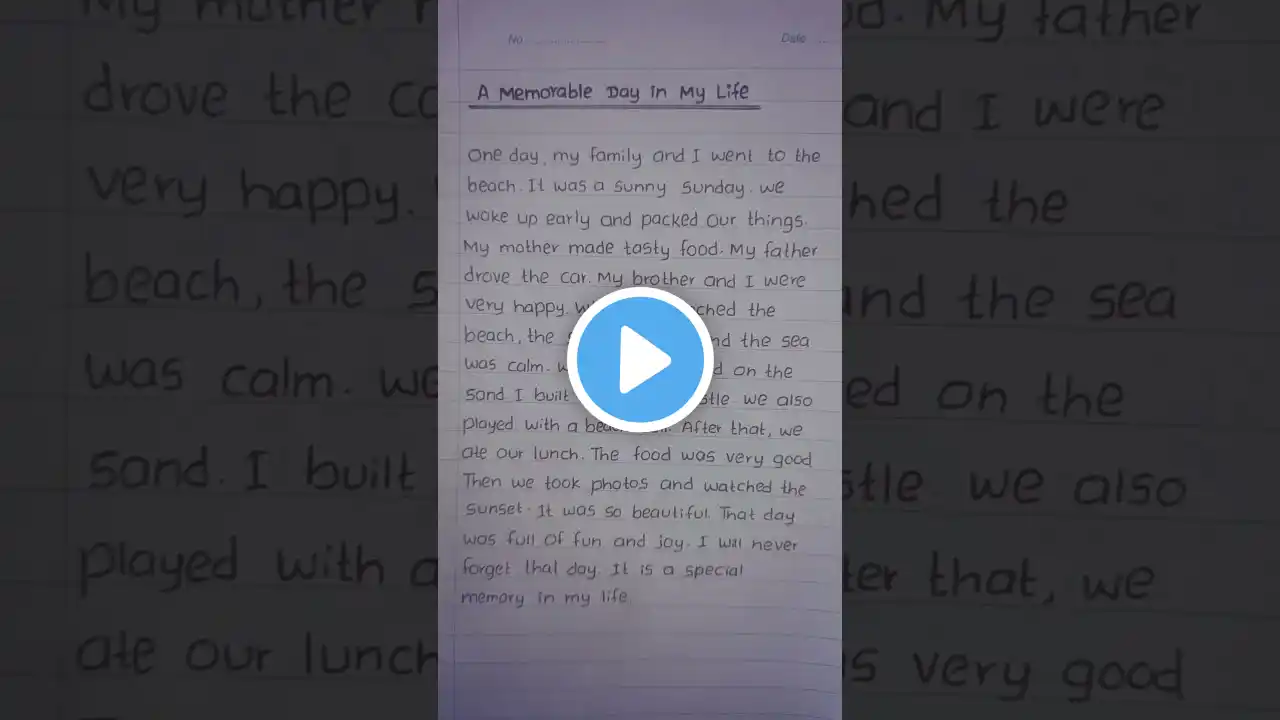 No
Date
A Memorable Day in My Life
One day, my family and I went to the
beach. It was a sunny sunday. we
woke up early and packed our things.
My mother made tasty food. My father
drove the car. My brother and I were
very happy. the
beach, the and the sea
was calm. on the
sand. I built we also
played with a After that, we
ate our lunch. The food was very good
Then we took photos and watched the
sunset. It was so beautiful. That day
was full of fun and joy. I will never
forget that day. It is a special
memory in my life